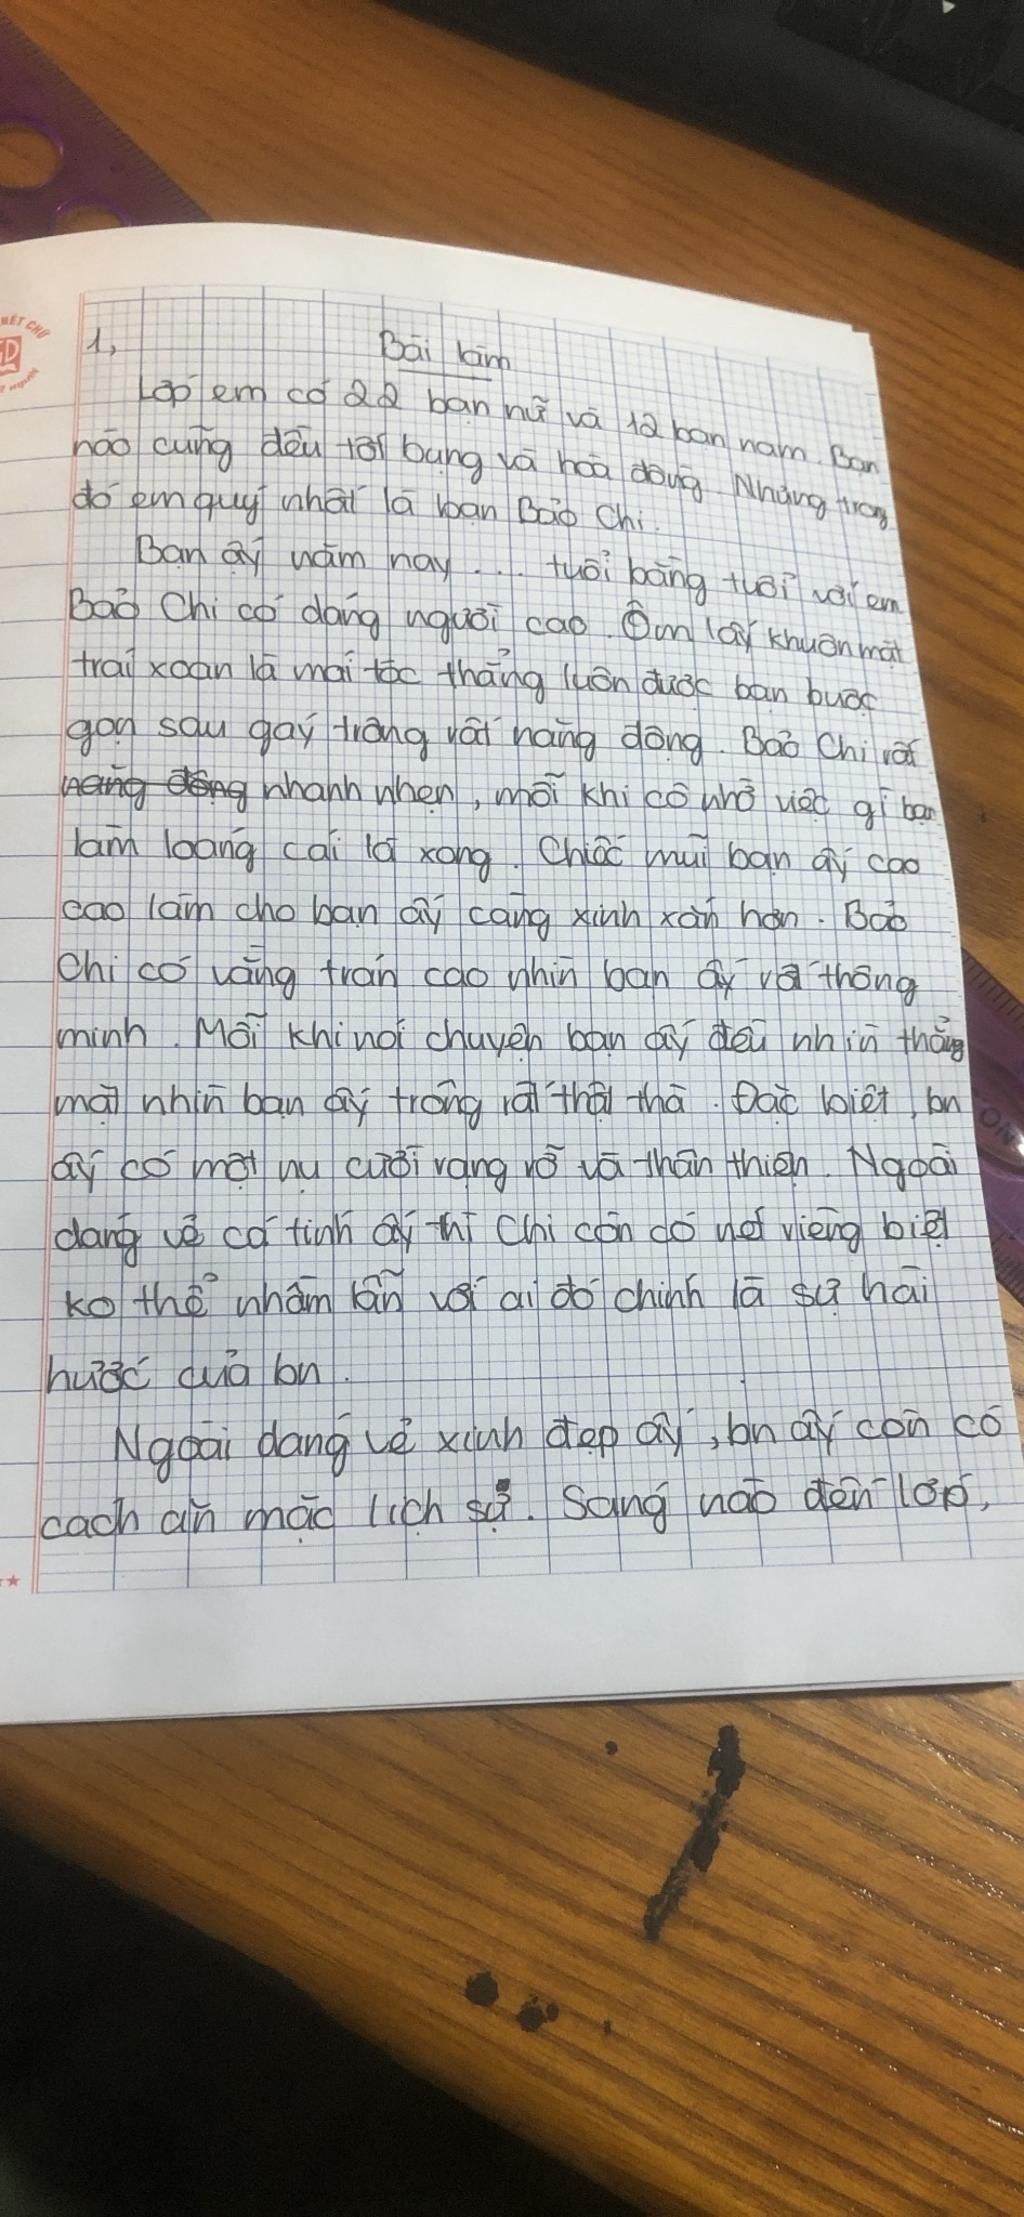 1,
Bài làm
Lớp em có 22 bạn nữ và 12 bạn nam. Bạn
nào cũng đều tốt bụng và hòa đồng. Nhưng trong
đó em quý nhất là bạn Bảo Chi.
Bạn ấy năm nay .... tuổi bằng tuổi với em
Bảo Chi có dáng người cao. Ôm lấy khuôn mặt
trái xoan là mái tóc thẳng luôn được bạn buộc
gọn sau gáy trông rất năng động. Bảo Chi rất
năng động nhanh nhẹn, mỗi khi cô nhờ việc gì bạn
làm loáng cái là xong. Chiếc mũi bạn ấy cao
cao làm cho bạn ấy càng xinh xắn hơn. Bảo
Chi có vầng trán cao nhìn bạn ấy rất thông
minh. Mỗi khi nói chuyện bạn ấy đều nhìn thẳng
mặt nhìn bạn ấy trông rất thật thà. Đặc biệt, bn
ấy có một nụ cười rạng rỡ và thân thiện. Ngoài
dáng vẻ cá tính ấy thì Chi còn có nét riêng biệt
ko thể nhầm lẫn với ai đó chính là sự hài
hước của bn.
Ngoài dáng vẻ xinh đẹp ấy, bn ấy còn có
cách ăn mặc lịch sự. Sáng nào đến lớp,